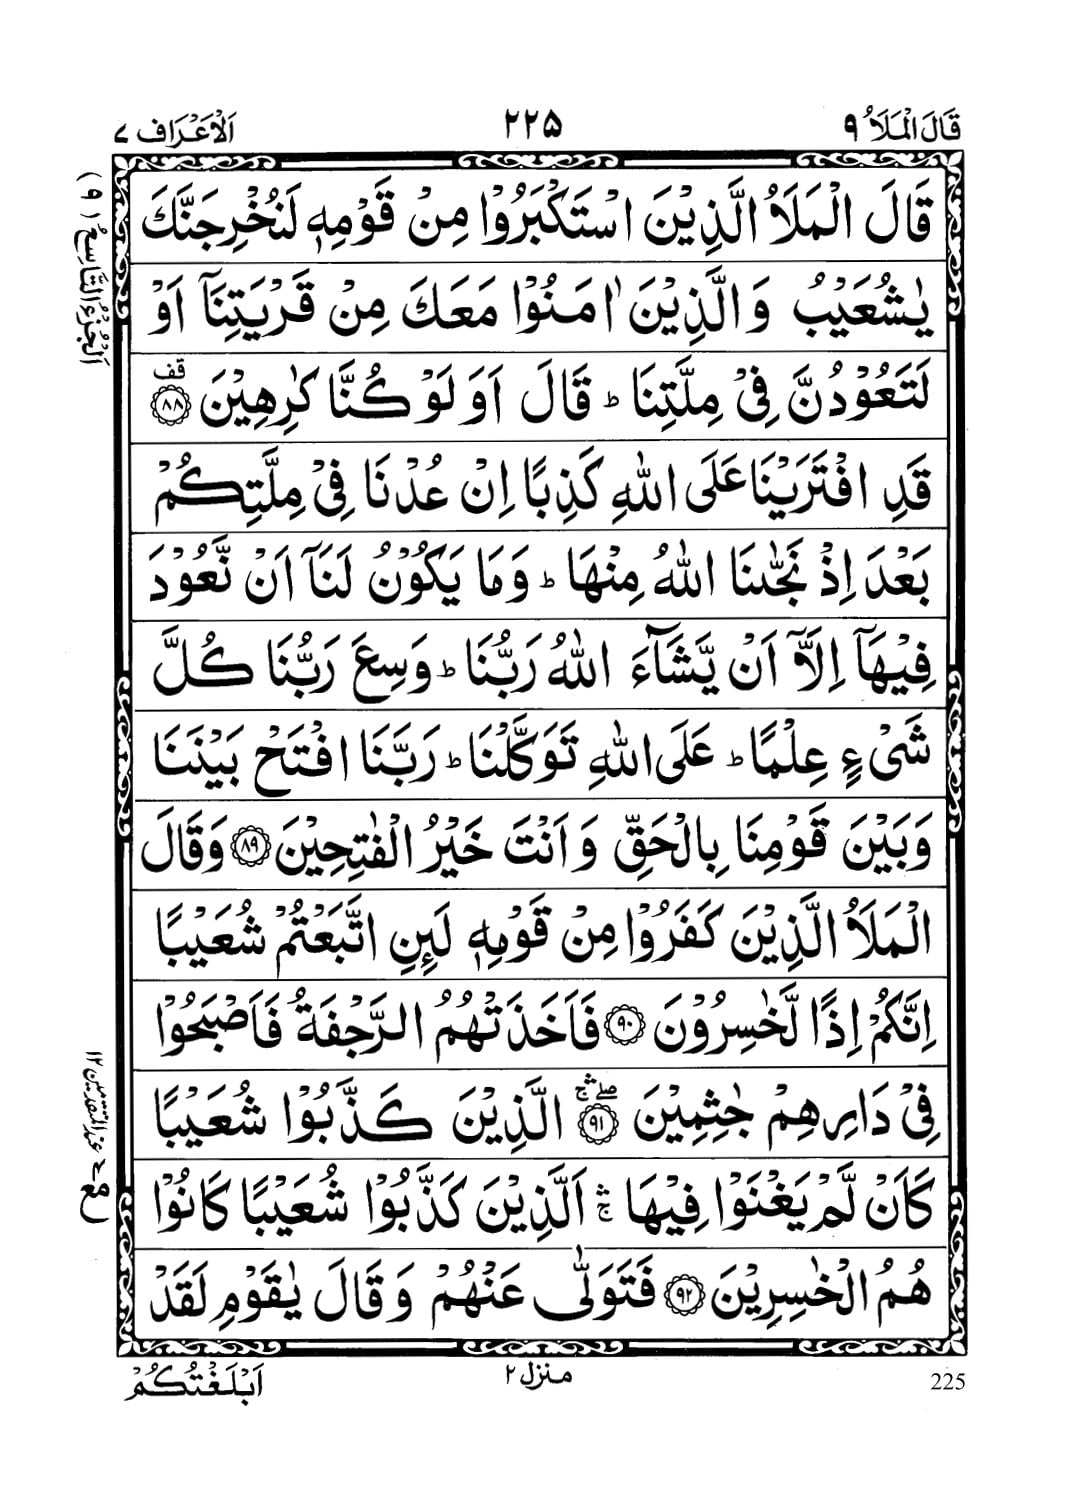 قَالَ الْمَلَاُ ۹
۲۲۵
اَلْاَعْرَاف ۷
اَلْجُزْءُ التَّاسِعُ (۹)
قَالَ الْمَلَاُ الَّذِيْنَ اسْتَكْبَرُوْا مِنْ قَوْمِهٖ لَنُخْرِجَنَّكَ
يٰشُعَيْبُ وَالَّذِيْنَ اٰمَنُوْا مَعَكَ مِنْ قَرْيَتِنَآ اَوْ
لَتَعُوْدُنَّ فِيْ مِلَّتِنَا ؕ قَالَ اَوَلَوْ كُنَّا كٰرِهِيْنَ ۟قف ﴿۸۸﴾
قَدِ افْتَرَيْنَا عَلَى اللّٰهِ كَذِبًا اِنْ عُدْنَا فِيْ مِلَّتِكُمْ
بَعْدَ اِذْ نَجّٰىنَا اللّٰهُ مِنْهَا ؕ وَمَا يَكُوْنُ لَنَآ اَنْ نَّعُوْدَ
فِيْهَآ اِلَّآ اَنْ يَّشَآءَ اللّٰهُ رَبُّنَا ؕ وَسِعَ رَبُّنَا كُلَّ
شَيْءٍ عِلْمًا ؕ عَلَى اللّٰهِ تَوَكَّلْنَا ؕ رَبَّنَا افْتَحْ بَيْنَنَا
وَبَيْنَ قَوْمِنَا بِالْحَقِّ وَاَنْتَ خَيْرُ الْفٰتِحِيْنَ ﴿۸۹﴾ وَقَالَ
الْمَلَاُ الَّذِيْنَ كَفَرُوْا مِنْ قَوْمِهٖ لَئِنِ اتَّبَعْتُمْ شُعَيْبًا
اِنَّكُمْ اِذًا لَّخٰسِرُوْنَ ﴿۹۰﴾ فَاَخَذَتْهُمُ الرَّجْفَةُ فَاَصْبَحُوْا
فِيْ دَارِهِمْ جٰثِمِيْنَ ۖۛۚ ﴿۹۱﴾ الَّذِيْنَ كَذَّبُوْا شُعَيْبًا
كَاَنْ لَّمْ يَغْنَوْا فِيْهَا ۛۚ اَلَّذِيْنَ كَذَّبُوْا شُعَيْبًا كَانُوْا
هُمُ الْخٰسِرِيْنَ ﴿۹۲﴾ فَتَوَلّٰى عَنْهُمْ وَقَالَ يٰقَوْمِ لَقَدْ
مع ۷ عند المتقدمين ۱۲
اَبْلَغْتُكُمْ
منزل ۲
225